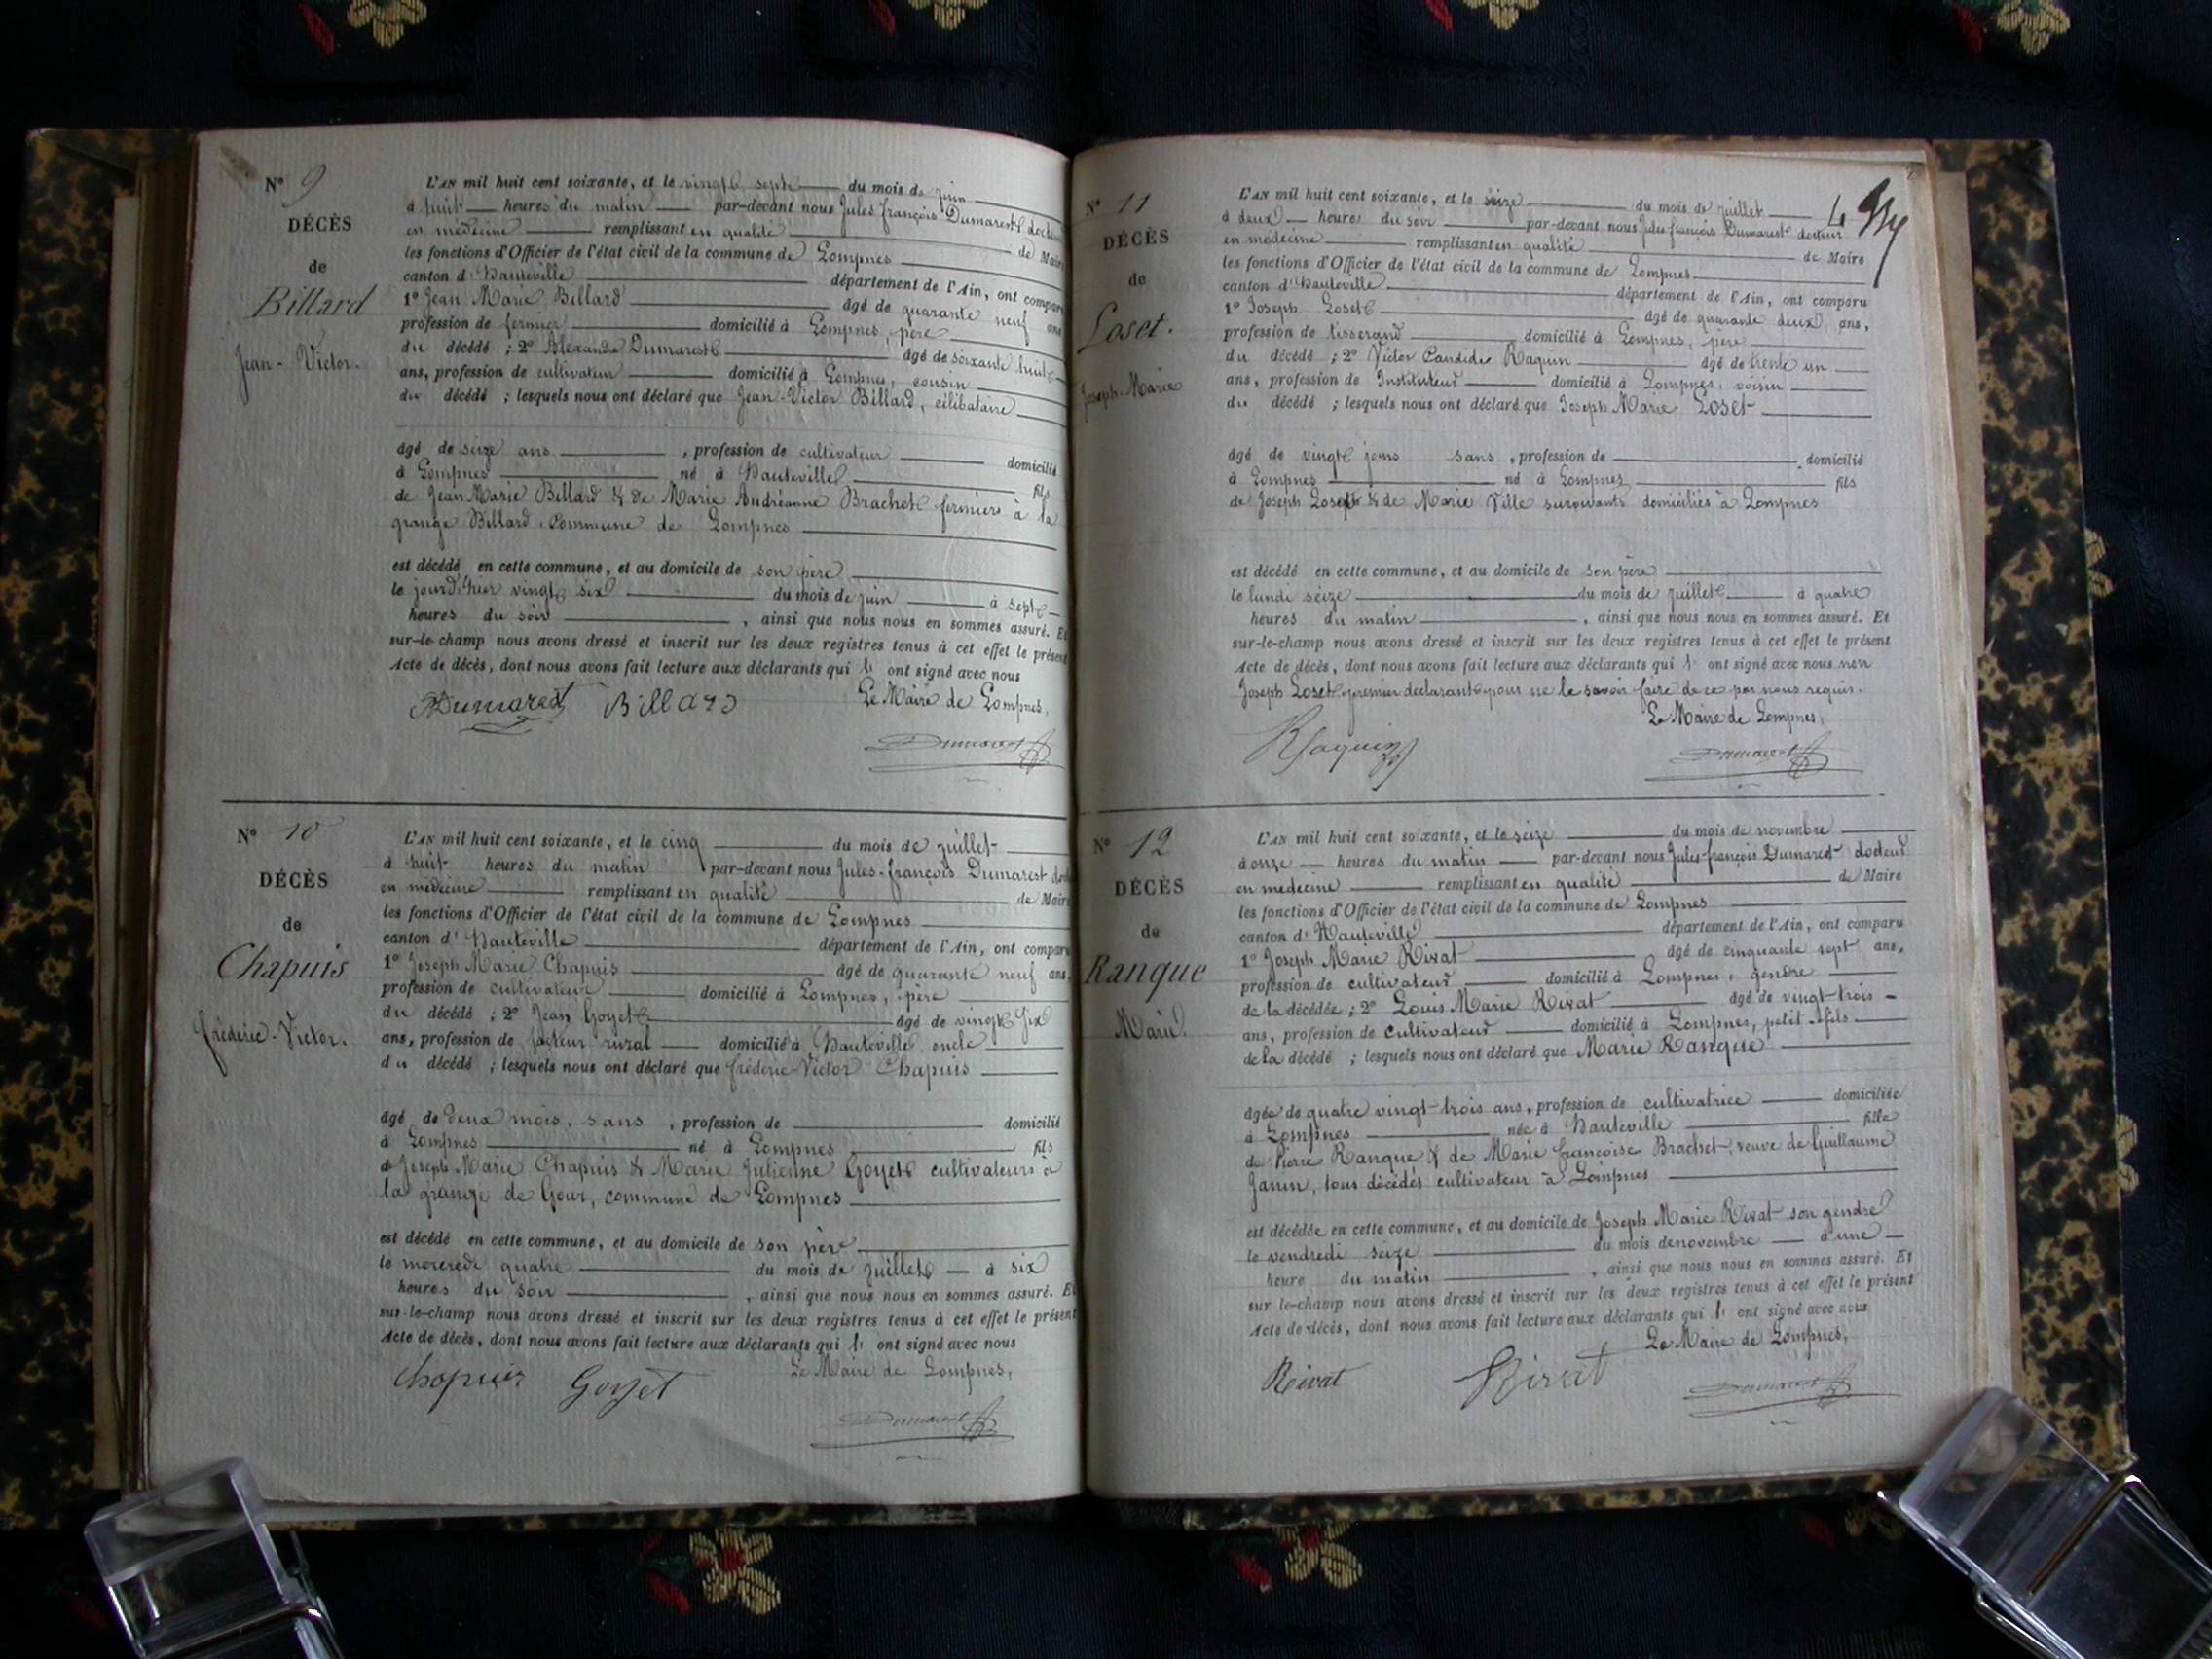 N° 9
DÉCÈS
de
Billard
Jean-Victor.
L'AN mil huit cent soixante, et le vingt sept du mois de juin
à huit heures du matin par-devant nous Jules François Dumarest docteur
en médecine remplissant en qualité de Maire
les fonctions d'Officier de l'état civil de la commune de Lompnes
canton d'Hauteville département de l'Ain, ont comparu
1° Jean Marie Billard âgé de quarante neuf ans
profession de fermier domicilié à Lompnes, père
du décédé ; 2° Alexandre Dumarest âgé de soixante huit
ans, profession de cultivateur domicilié à Lompnes, cousin
du décédé ; lesquels nous ont déclaré que Jean-Victor Billard, célibataire
âgé de seize ans , profession de cultivateur domicilié
à Lompnes né à Hauteville fils
de Jean Marie Billard & de Marie Andréanne Brachet fermiers à la
grange Billard, Commune de Lompnes
est décédé en cette commune, et au domicile de son père
le jourd'hier vingt six du mois de juin à sept
heures du soir , ainsi que nous nous en sommes assuré. Et
sur-le-champ nous avons dressé et inscrit sur les deux registres tenus à cet effet le présent
Acte de décès, dont nous avons fait lecture aux déclarants qui ont signé avec nous
Dumarest Billard Le Maire de Lompnes,
Dumarest
N° 10
DÉCÈS
de
Chapuis
frédéric-Victor.
L'AN mil huit cent soixante, et le cinq du mois de juillet
à huit heures du matin par-devant nous Jules-françois Dumarest
en médecine remplissant en qualité de Maire
les fonctions d'Officier de l'état civil de la commune de Lompnes
canton d'Hauteville département de l'Ain, ont comparu
1° Joseph Marie Chapuis âgé de quarante neuf ans,
profession de cultivateur domicilié à Lompnes, père
du décédé ; 2° Jean Goyet âgé de vingt six
ans, profession de facteur rural domicilié à Hauteville, oncle
du décédé ; lesquels nous ont déclaré que frédéric-Victor Chapuis
âgé de deux mois, sans , profession de domicilié
à Lompnes né à Lompnes fils
de Joseph Marie Chapuis & Marie Julienne Goyet cultivateurs à
la grange de Gour, commune de Lompnes
est décédé en cette commune, et au domicile de son père
le mercredi quatre du mois de juillet à six
heures du soir , ainsi que nous nous en sommes assuré. Et
sur-le-champ nous avons dressé et inscrit sur les deux registres tenus à cet effet le présent
Acte de décès, dont nous avons fait lecture aux déclarants qui ont signé avec nous
Chapuis Goyet Le Maire de Lompnes,
Dumarest
4
N° 11
DÉCÈS
de
Loset.
Joseph-Marie
L'AN mil huit cent soixante, et le seize du mois de juillet
à deux heures du soir par-devant nous Jules françois Dumarest docteur
en médecine remplissant en qualité de Maire
les fonctions d'Officier de l'état civil de la commune de Lompnes
canton d'Hauteville département de l'Ain, ont comparu
1° Joseph Loset âgé de quarante deux ans,
profession de tisserand domicilié à Lompnes, père
du décédé ; 2° Victor Candide Raquin âgé de trente un
ans, profession de Instituteur domicilié à Lompnes, voisin
du décédé ; lesquels nous ont déclaré que Joseph Marie Loset
âgé de vingt jours sans , profession de domicilié
à Lompnes né à Lompnes fils
de Joseph Loset & de Marie Ville survivants domiciliés à Lompnes
est décédé en cette commune, et au domicile de son père
le lundi seize du mois de juillet à quatre
heures du matin , ainsi que nous nous en sommes assuré. Et
sur-le-champ nous avons dressé et inscrit sur les deux registres tenus à cet effet le présent
Acte de décès, dont nous avons fait lecture aux déclarants qui ont signé avec nous non
Joseph Loset premier déclarant pour ne le savoir faire de ce par nous requis.
Le Maire de Lompnes,
Raquin Dumarest
N° 12
DÉCÈS
de
Ranque
Marie.
L'AN mil huit cent soixante, et le seize du mois de novembre
à onze heures du matin par-devant nous Jules-françois Dumarest docteur
en médecine remplissant en qualité de Maire
les fonctions d'Officier de l'état civil de la commune de Lompnes
canton d'Hauteville département de l'Ain, ont comparu
1° Joseph Marie Rivat âgé de cinquante sept ans,
profession de cultivateur domicilié à Lompnes, gendre
de la décédée ; 2° Louis Marie Rivat âgé de vingt-trois
ans, profession de cultivateur domicilié à Lompnes, petit-fils
de la décédé ; lesquels nous ont déclaré que Marie Ranque
âgée de quatre vingt-trois ans, profession de cultivatrice domiciliée
à Lompnes née à Hauteville fille
de Pierre Ranque & de Marie françoise Brachet, veuve de Guillaume
Janin, tous décédés cultivateur à Lompnes
est décédée en cette commune, et au domicile de Joseph Marie Rivat son gendre
le vendredi seize du mois de novembre à une
heure du matin , ainsi que nous nous en sommes assuré. Et
sur le-champ nous avons dressé et inscrit sur les deux registres tenus à cet effet le présent
Acte de décès, dont nous avons fait lecture aux déclarants qui ont signé avec nous
Le Maire de Lompnes,
Rivat Rivat Dumarest